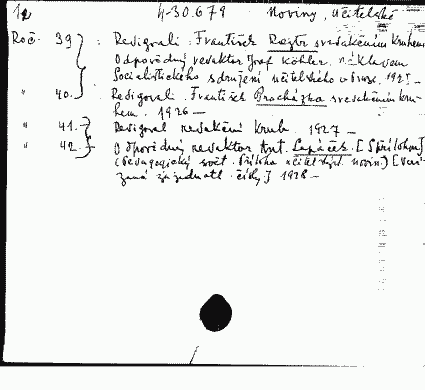 12 4-30.679 Noviny, učitelské
Roč. 39 : Redigovali: František s redakčním kruhem
Odpovědný redaktor Josef Köhler. nákladem
Socialistického sdružení učitelského v Praze. 1925 —
" 40. Redigovali. František Procházka s redakčním kru-
hem. 1926 —
" 41. Redigoval redakční kruh. 1927 —
" 42. Odpovědný redaktor Ant. Lapáček. [S přílohou]
(Pedagogický svět. Příloha učitelských novin) [
za jednotl. čísly] 1928 —